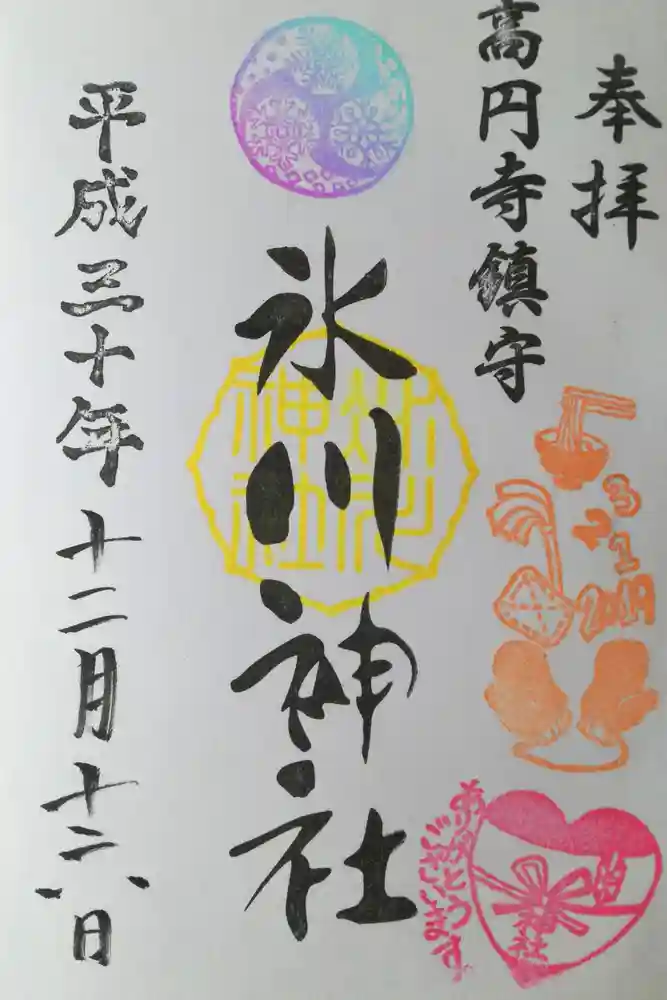 奉拝
高円寺鎮守
氷川神社
氷川
神社
平成三十年十二月十六日
ありがとう
ございます